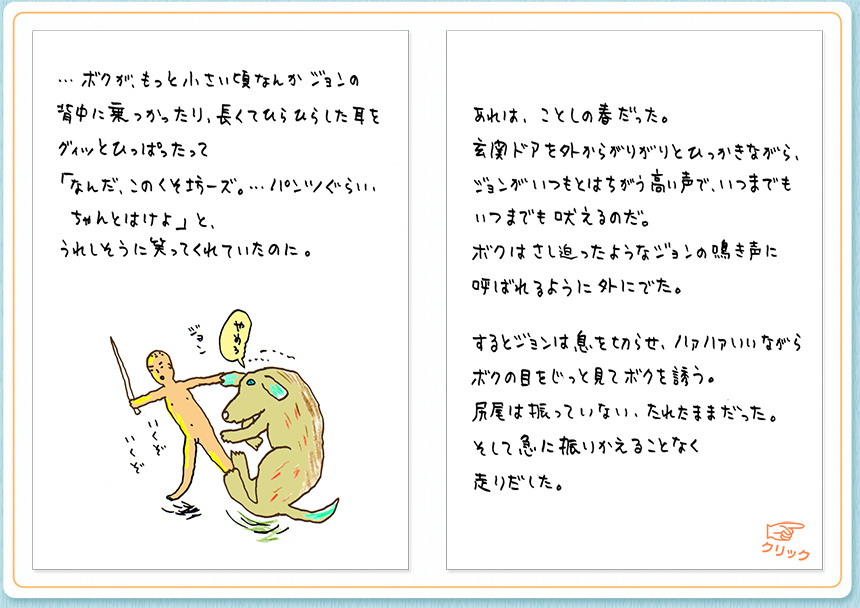 … ボクが、もっと小さい頃なんか ジョンの
背中に乗っかったり、長くてひらひらした耳を
グィッとひっぱったって
「なんだ、このくそ坊ーズ。… パンツぐらい、
ちゃんとはけよ」と、
うれしそうに笑ってくれていたのに。
ジョン
やめろ
いくぞ
いくぞ
あれは、ことしの春だった。
玄関ドアを外からがりがりとひっかきながら、
ジョンがいつもとはちがう高い声で、いつまでも
いつまでも吠えるのだ。
ボクはさし迫ったようなジョンの鳴き声に
呼ばれるように外にでた。
するとジョンは息を切らせ、ハァハァいいながら
ボクの目をじっと見てボクを誘う。
尻尾は振っていない、たれたままだった。
そして急に振りかえることなく
走りだした。
クリック